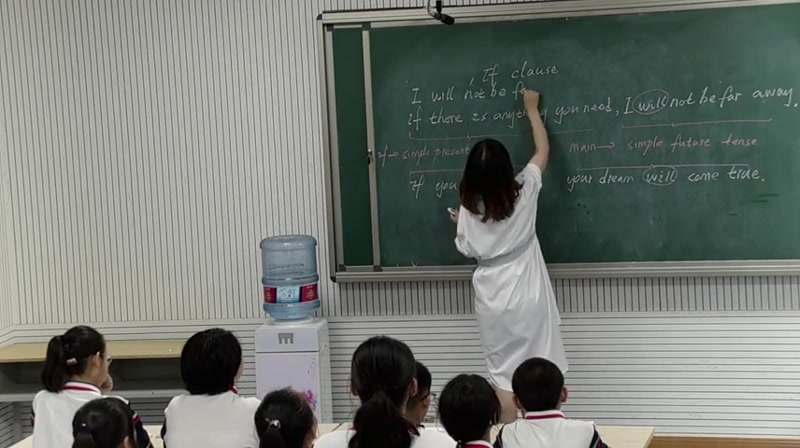 If clause
I will not be fa
if there is anything you need, I will not be far away.
if → simple present main → simple future tense
if you your dream will come true.